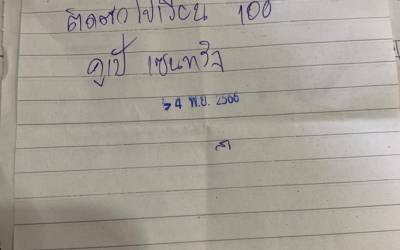 ติดตัวไปเรียน 100
คูเปี เซนทรัล
24 พ.ย. 2566